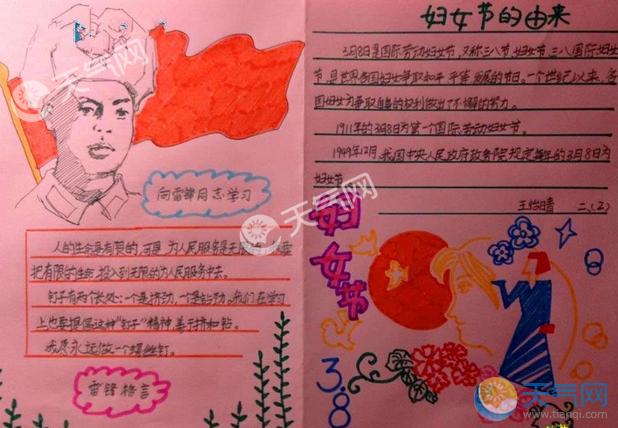 向雷锋同志学习
人的生命是有限的,可是,为人民服务是无限的,我要
把有限的生命,投入到无限的为人民服务中去。
钉子有两个长处:一个是挤劲,一个是钻劲,我们在学习
上也要提倡这种"钉子"精神,善于挤和钻。
我愿永远做一个螺丝钉。
雷锋格言
妇女节的由来
3月8日是国际劳动妇女节,又称三八节,妇女节,三八国际妇女
节,是世界各国妇女争取和平 平等 发展的节日。一个世纪以来,各
国妇女为争取自身的权利做出了不懈的努力。
1911年的3月8日为第一个国际劳动妇女节。
1949年12月,我国中央人民政府政务院规定每年的3月8日为
妇女节
二.(2)
妇女节
3.8
天气网
天气网
天气网
www.tianqi.com